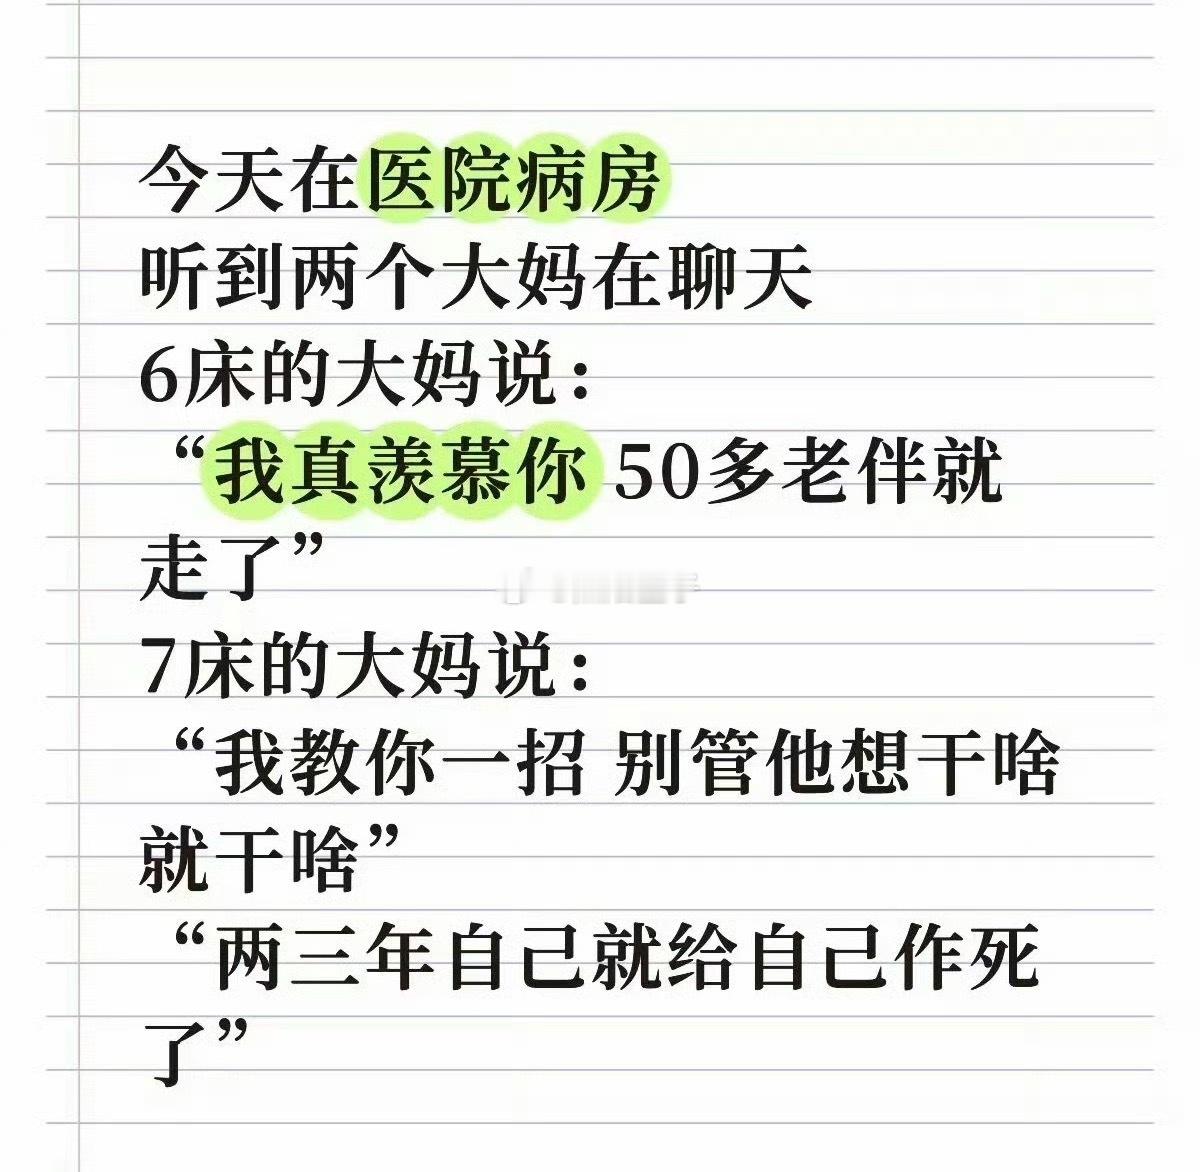 今天在医院病房
听到两个大妈在聊天
6床的大妈说：
“我真羡慕你 50多老伴就
走了”
7床的大妈说：
“我教你一招 别管他想干啥
就干啥”
“两三年自己就给自己作死
了”